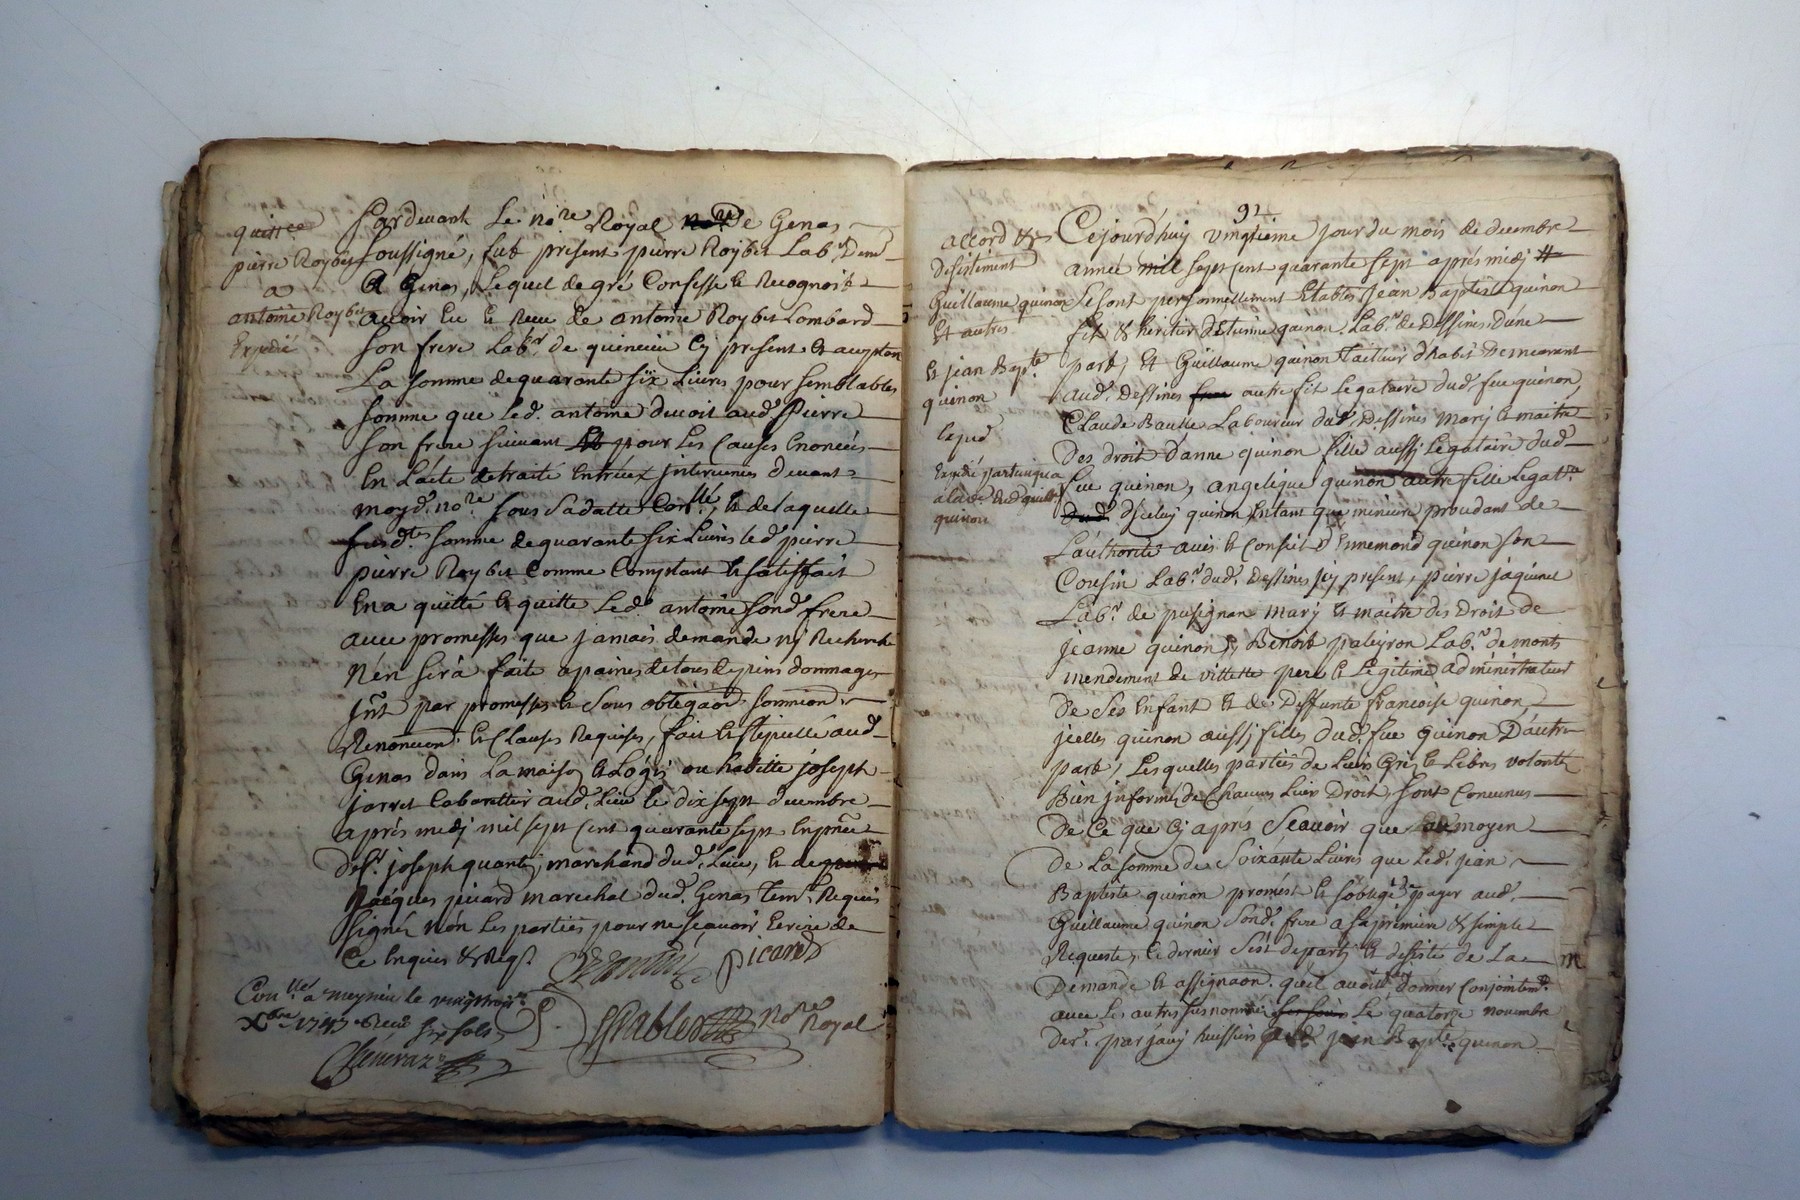 quittce
pierre Roybet
a
antoine Roybet
Expédié
Pardevant le no.re Royal de Genas
soussigné, fut présent pierre Roybet Lab.r Deme.t
A Genas, lequel de gré Confesse et Recognoit
avoir Eu et Receu de antoine Roybet Lombard
son frere Lab.r de quincieu Cy present et acceptan
La somme de quarante six Livres pour semblables
somme que led. antoine devoit aud. Pierre
son frere suivant pour les Causes Enoncées
En L'acte de traité Entr'eux intervenus devant
moyd. no.re sous sa datte Con.llé, et de laquelle
susd.tes somme de quarante six Livres led. pierre
pierre Roybet Comme Comptant et satisffait
En a quitté et quitte led. antoine sond. frere
avec promesses que jamais demande nj Recherche
n'en sera faite a paines de tous depens dommages
jnt par promesses et sous obligaon soumiõn
Renonciõn et Clauses Requises, fait et stipullé aud.
Genas dans La maison et Logis ou habitte joseph
jarret Cabarettier aud. Lieu le dix sept decembre
après midj mil sept cent quarante sept En pñce
de s.r joseph quantin, marchand dud. Lieu, et de
Jacques picard marechal dud. Genas tem.s Requis
signés non les parties pour ne sçavoir Ecrire de
Ce Enquis et Req.s
Quantin picard
Con.llé a meyzieu le vingttrois
Xbre 1747 Receu six sols
Chabled no.re Royal
92
accord et
desistement
Guillaume quinon
Et autres
et jean Bap.te
quinon
Expédié
quinon
Cejourd'huy vingtieme jour du mois de decembre
année mil sept cent quarante sept après midj
se sont personnellement Etablis Jean Baptiste quinon
fils et heritier d'Etienne quinon Lab.r de Dessines d'une
part, Et Guillaume quinon tailleur d'habit Demeurant
aud. Dessines autre fils Legataire dud. feu quinon,
Claude Laboureur dud. Dessines marj et maitre
Des droit d'anne quinon fille aussj Legataire dud.
feu quinon, angelique quinon autre fille Legat.re
Dud. d'jceluy quinon, Entant que mineure procedant de
L'authorité avis et Conseil d'Ennemond quinon son
Cousin Lab.r dud. Dessines jcy present, pierre jaquinet
Lab.r de pusignan marj et maitre des Droit de
jeanne quinon, et Benoit paleyron Lab.r de monts
mendement de villette pere et Legitime administrateur
De ses Enfant et de Deffunte francoise quinon,
jcelles quinon aussj filles dud. feu quinon D'autre
part, Lesquelles parties de Leurs Grés et Libres volontés
Bien jnformés de Chacuns Leur Droit, sont Convenus
De Ce que Cy après Scavoir que moyen
de La somme de soixante Livres que led. jean
Baptiste quinon promest et s'oblige payer aud.
Guillaume quinon sond. frere a sa premiere et simple
Requeste, Ce dernier s'est departj et desiste de La
Demande et assignaon qu'il avoit fait donner Conjointem.t
avec Les autres susnommés Le quatorze novembre
der.r par janj huissier jean Bapt.e quinon